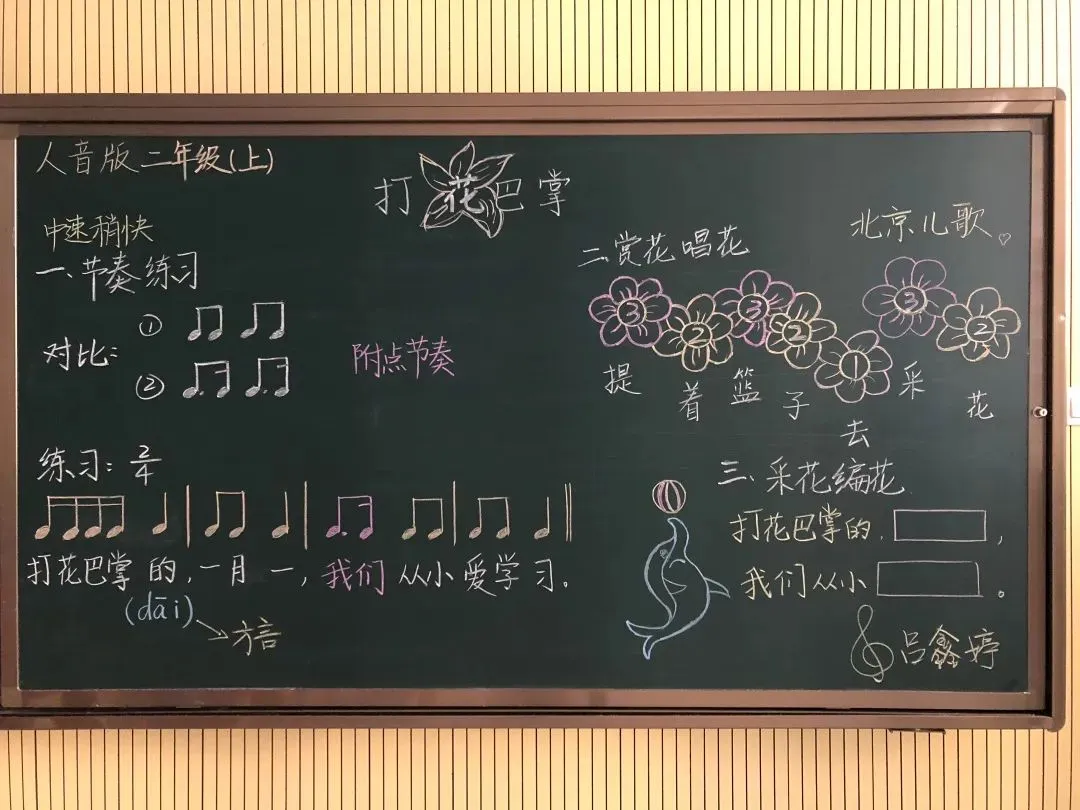 人音版二年级(上)
打花巴掌
北京儿歌
中速稍快
一、节奏练习
对比：
①
②
附点节奏
练习：2/4
打花巴掌的，一月一，我们从小爱学习。
(dāi)
方言
二、赏花唱花
3 2 3 2 1 3 2
提着篮子去采花
三、采花编花
打花巴掌的，
我们从小 。
吕鑫婷